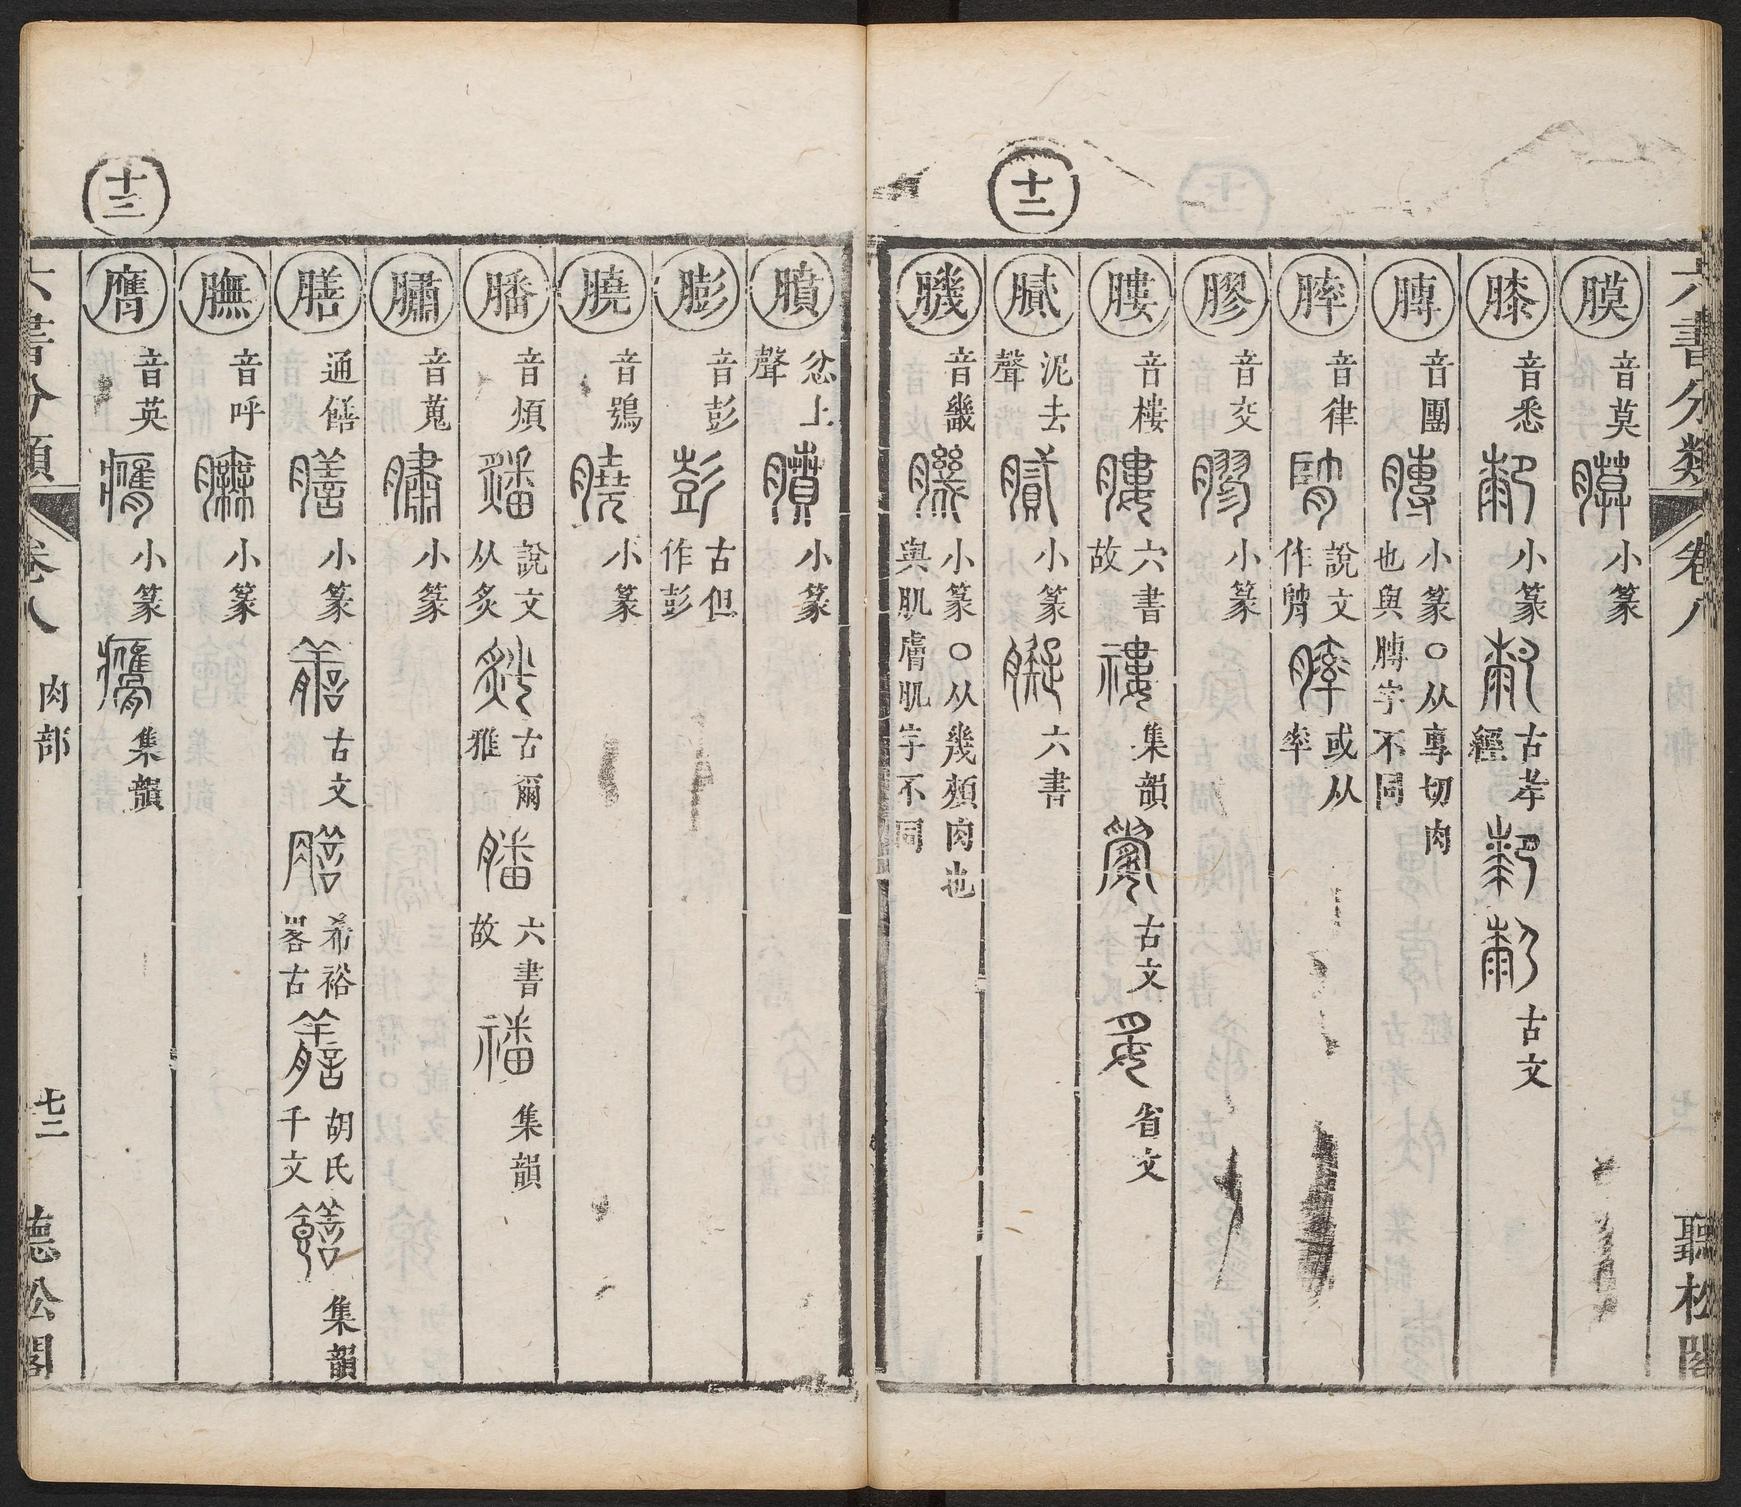 六書分類 卷八 聽松閣
膜 音莫 小篆
膝 音悉 小篆 古孝經 古文
膞 音團 小篆○从專切肉也與膊字不同
膟 音律 說文作膟 或从率
膠 音交 小篆
十二
膢 音樓 六書故 集韻 古文 省文
膩 泥去聲 小篆 六書
䐴 音畿 小篆○从幾頰肉也與肌膚肌字不同
膹 忿上聲 小篆
膨 音彭 古但作彭
膮 音鴞 小篆
膰 音煩 說文从炙 古爾雅 六書故 集韻
膴 音蒐 小篆
膳 通饍 小篆 古文 希裕畧古 胡氏千文 集韻
膴 音呼 小篆
十三
膺 音英 小篆 集韻
六書分類 卷八 肉部 七二 聽松閣